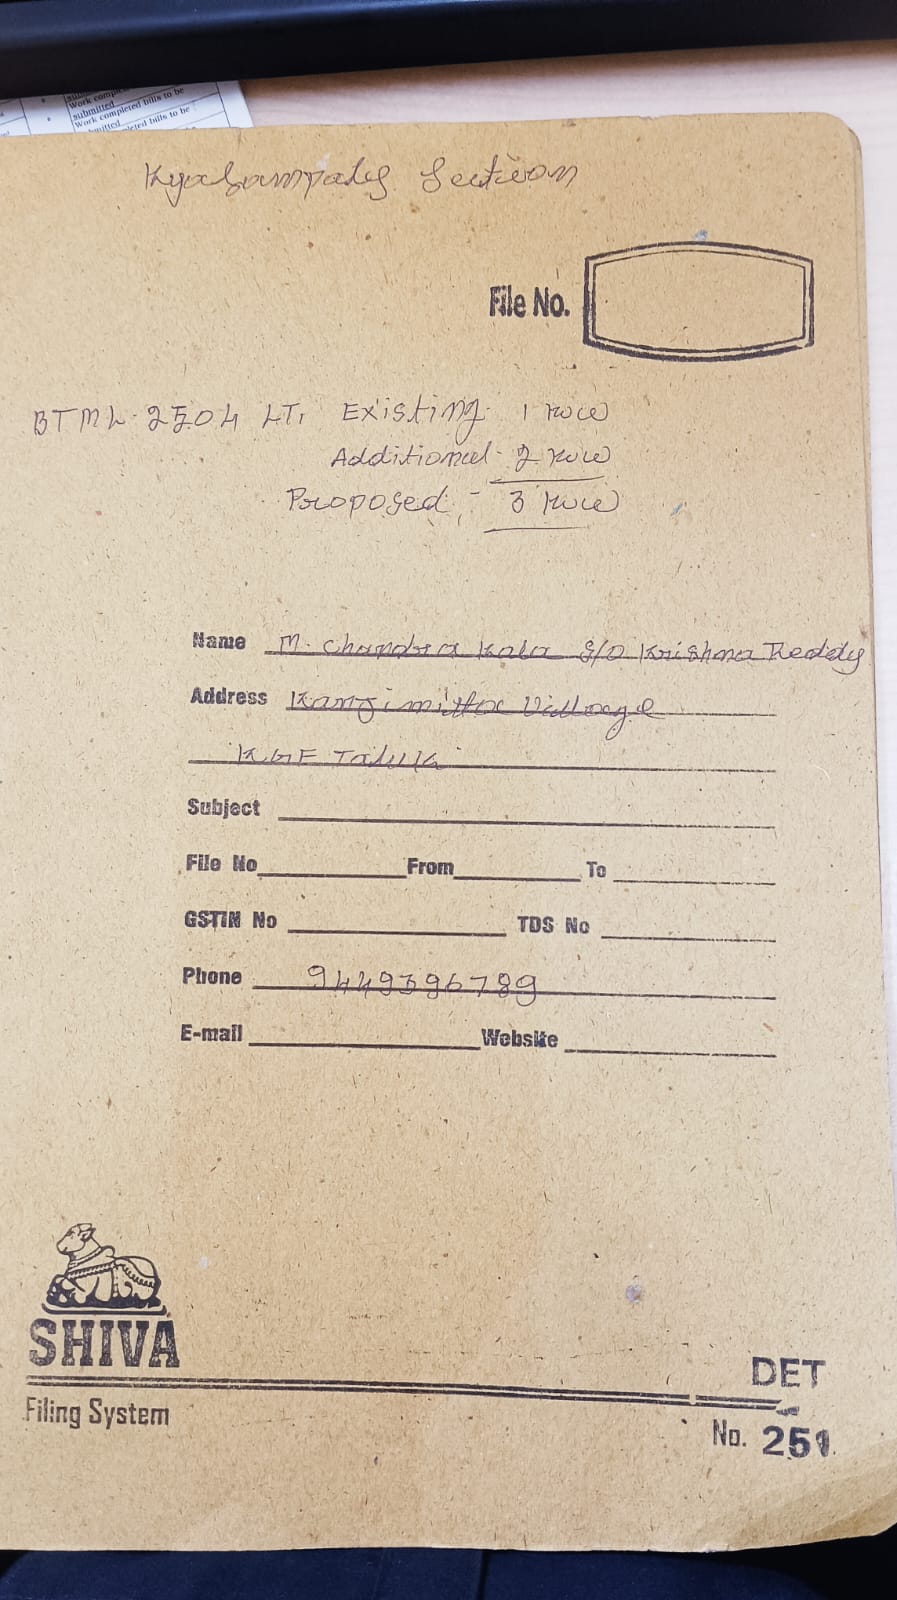 Work comple
submitted
Work completed bills to be
bmitted
leted bills to be
Kyasampally Section
File No.
BTML-2504 LT, Existing- 1 KW
Additional- 2 KW
Proposed,- 3 KW
Name M. Chandra Kala S/O Krishna Reddy
Address Village
KGF Taluk
Subject
File No From To
GSTIN No TDS No
Phone 9449396789
E-mail Website
SHIVA
Filing System
DET
No. 251